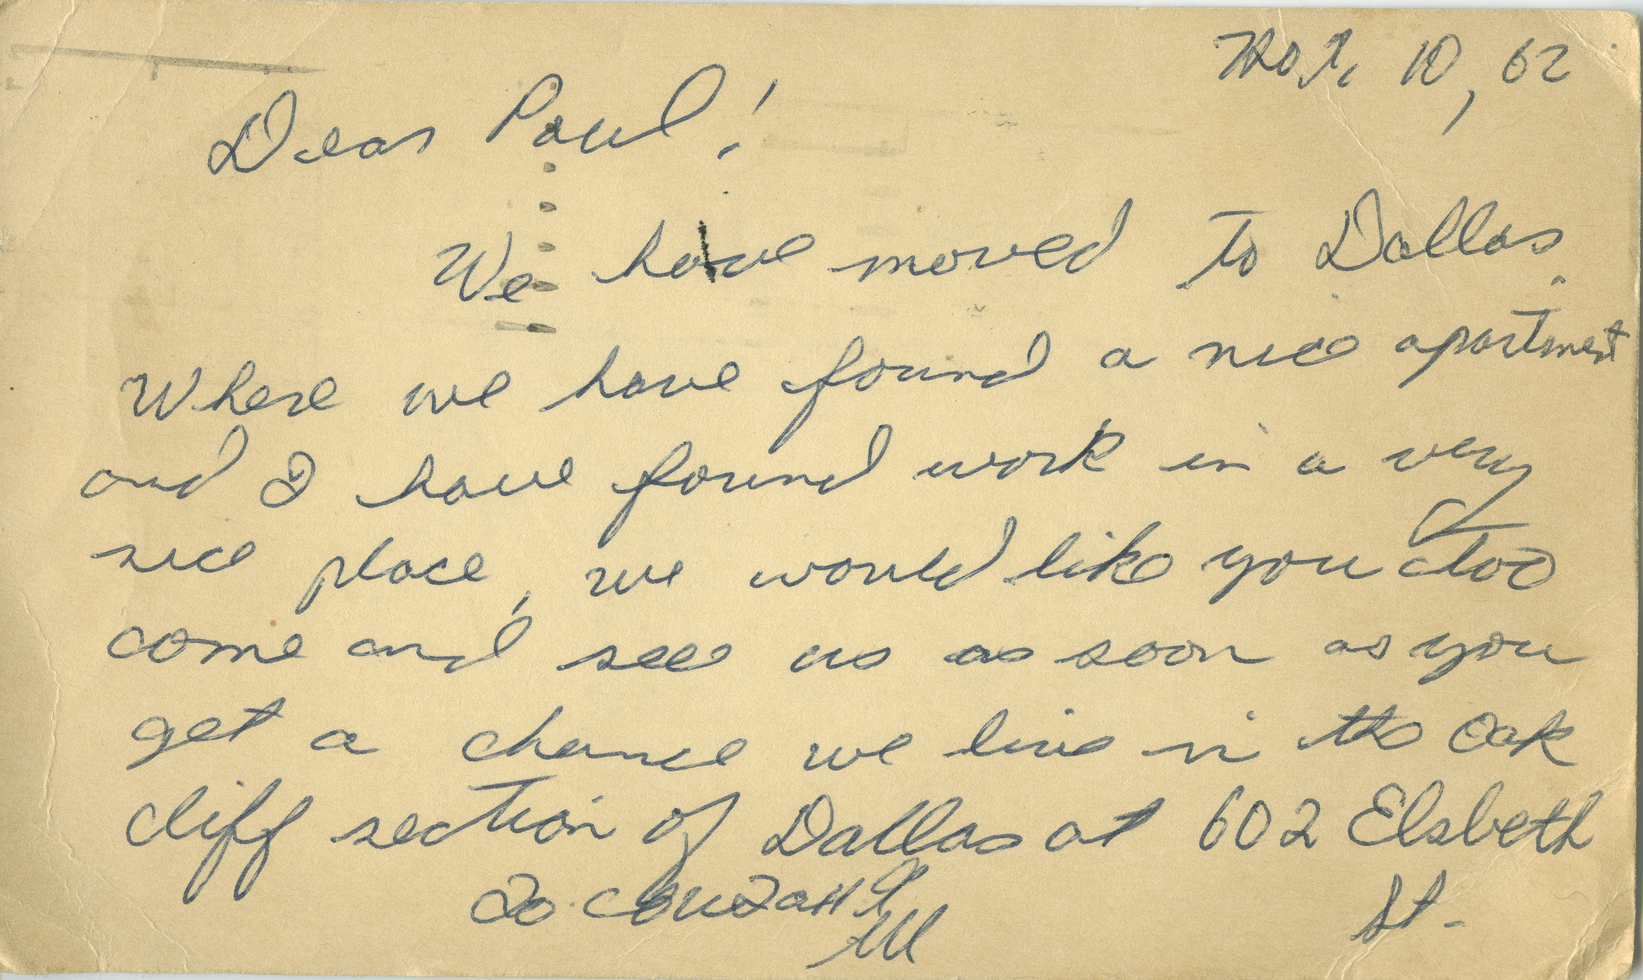 Nov. 10, 62
Dear Paul!
We have moved to Dallas.
Where we have found a nice apartment
and I have found work in a very
nice place, we would like you too
come and see us as soon as you
get a chance we live in the Oak
cliff section of Dallas at 602 Elsbeth
St.
До свидания